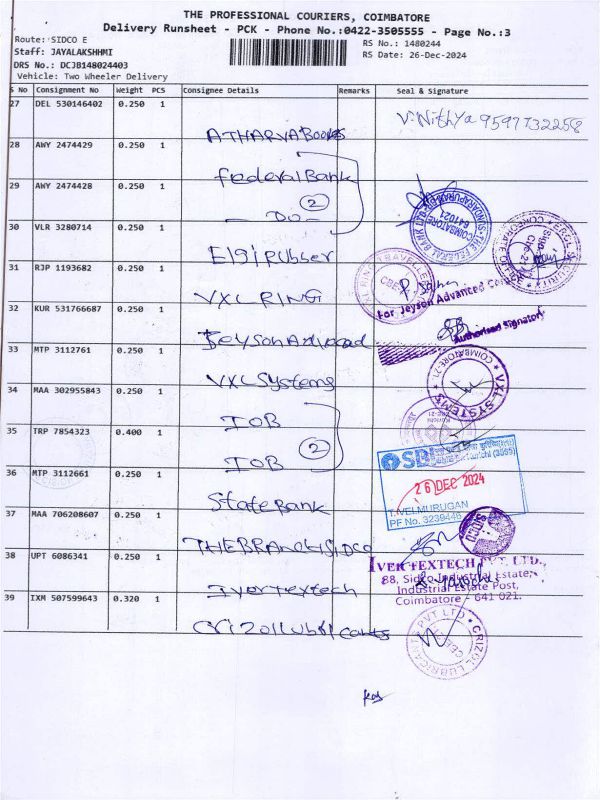 THE PROFESSIONAL COURIERS, COIMBATORE
Delivery Runsheet - PCK - Phone No.:0422-3505555 - Page No.:3
Route: SIDCO E
RS No.: 1480244
Staff: JAYALAKSHHMI
RS Date: 26-Dec-2024
DRS No.: DCJB148024403
Vehicle: Two Wheeler Delivery
S No Consignment No Weight PCS Consignee Details Remarks Seal & Signature
27 DEL 530146402 0.250 1
V.Nithya 9597732258
ATHARVA Books
28 AWY 2474429 0.250 1
Federal Bank
29 AWY 2474428 0.250 1
2
- Do -
COIMBATORE
641021
30 VLR 3280714 0.250 1
Elgi Rubber
31 RJP 1193682 0.250 1
VXL RING
For Jeyson Advanced
32 KUR 531766687 0.250 1
Authorised Signatory
Jeyson Advanced
33 MTP 3112761 0.250 1
VXL Systems
COIMBATORE-21 * VXL-SYSTEMS *
34 MAA 302955843 0.250 1
IOB
35 TRP 7854323 0.400 1
2
IOB
SBI
36 MTP 3112661 0.250 1
26 DEC 2024
State Bank
T.VELMURUGAN
PF No. 3239446
37 MAA 706208607 0.250 1
THE BRANCH SIDCO
38 UPT 6086341 0.250 1
IVER TEXTECH PVT. LTD.,
88, Sidco Industrial Estate,
Industrial Estate Post,
Coimbatore - 641 021.
Iver textech
39 IXM 507599643 0.320 1
Crizol Lubricants
CRIZOL LUBRICANTS PVT LTD *